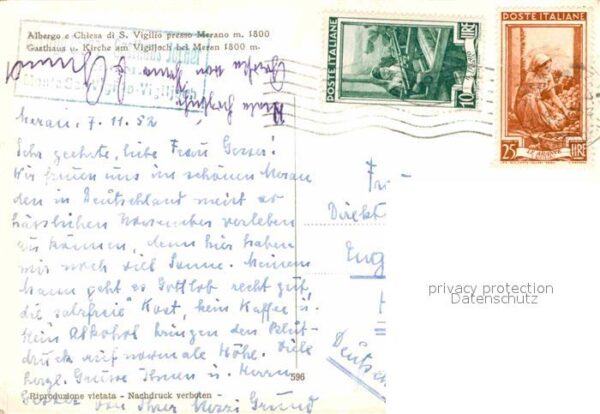 Albergo e Chiesa di S. Vigilio presso Merano m. 1800
Gasthaus u. Kirche am Vigiljoch bei Meran 1800 m.
Meran, 7. 11. 52
Sehr geehrte, liebe Frau Gesser!
Wir freuen uns im schönen Meran
den in Deutschland meist so
hässlichen November verleben
zu können, denn hier haben
wir noch viel Sonne. Meinem
Mann geht es Gottlob recht gut,
die salzfreie Kost, kein Kaffee u.
kein Alkohol bringen den Blut-
druck auf normale Höhe. Viele
herzl. Grüsse Ihnen u. Herrn
von Ihrer
Riproduzione vietata - Nachdruck verboten -
596
POSTE ITALIANE
10 LIRE
POSTE ITALIANE
25 LIRE
LE ARANCE
Direkt
Eng
Deutsch
privacy protection
Datenschutz